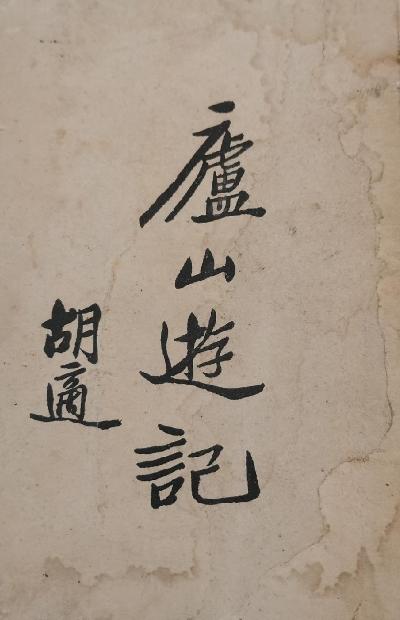 廬山遊記
胡適